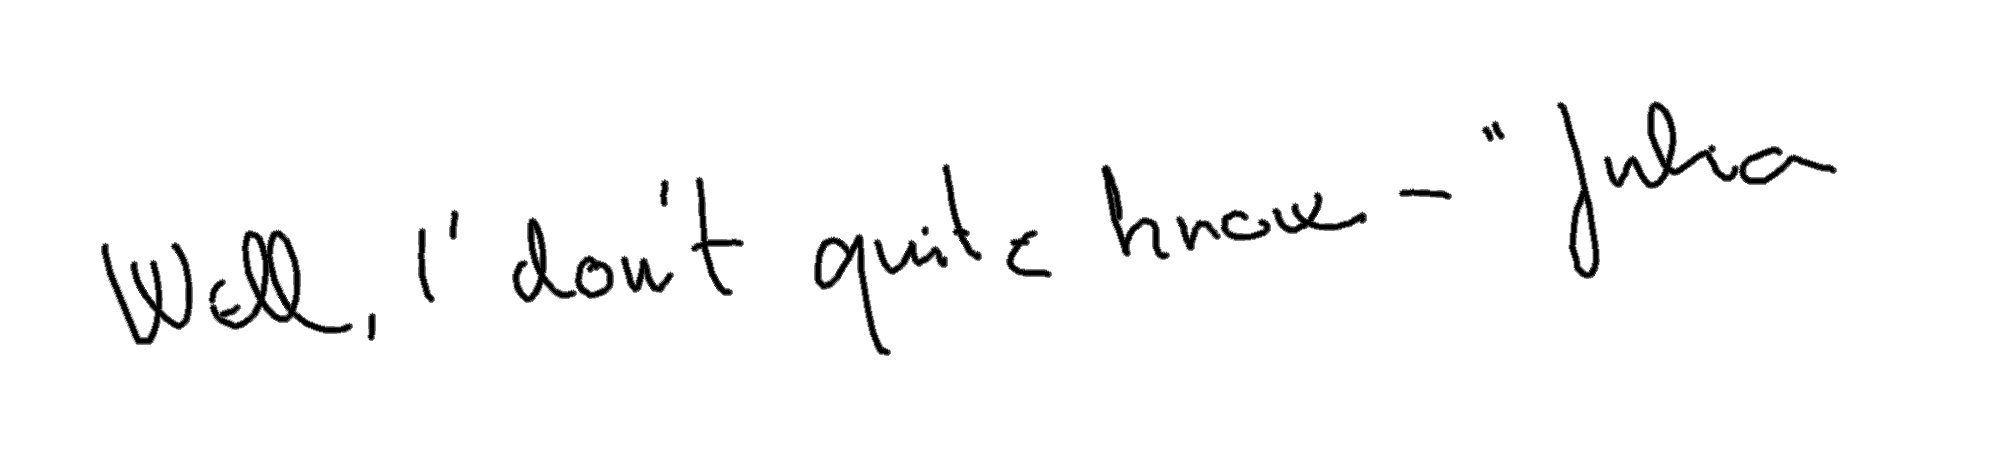 Well, I' don't quite know - " Julia